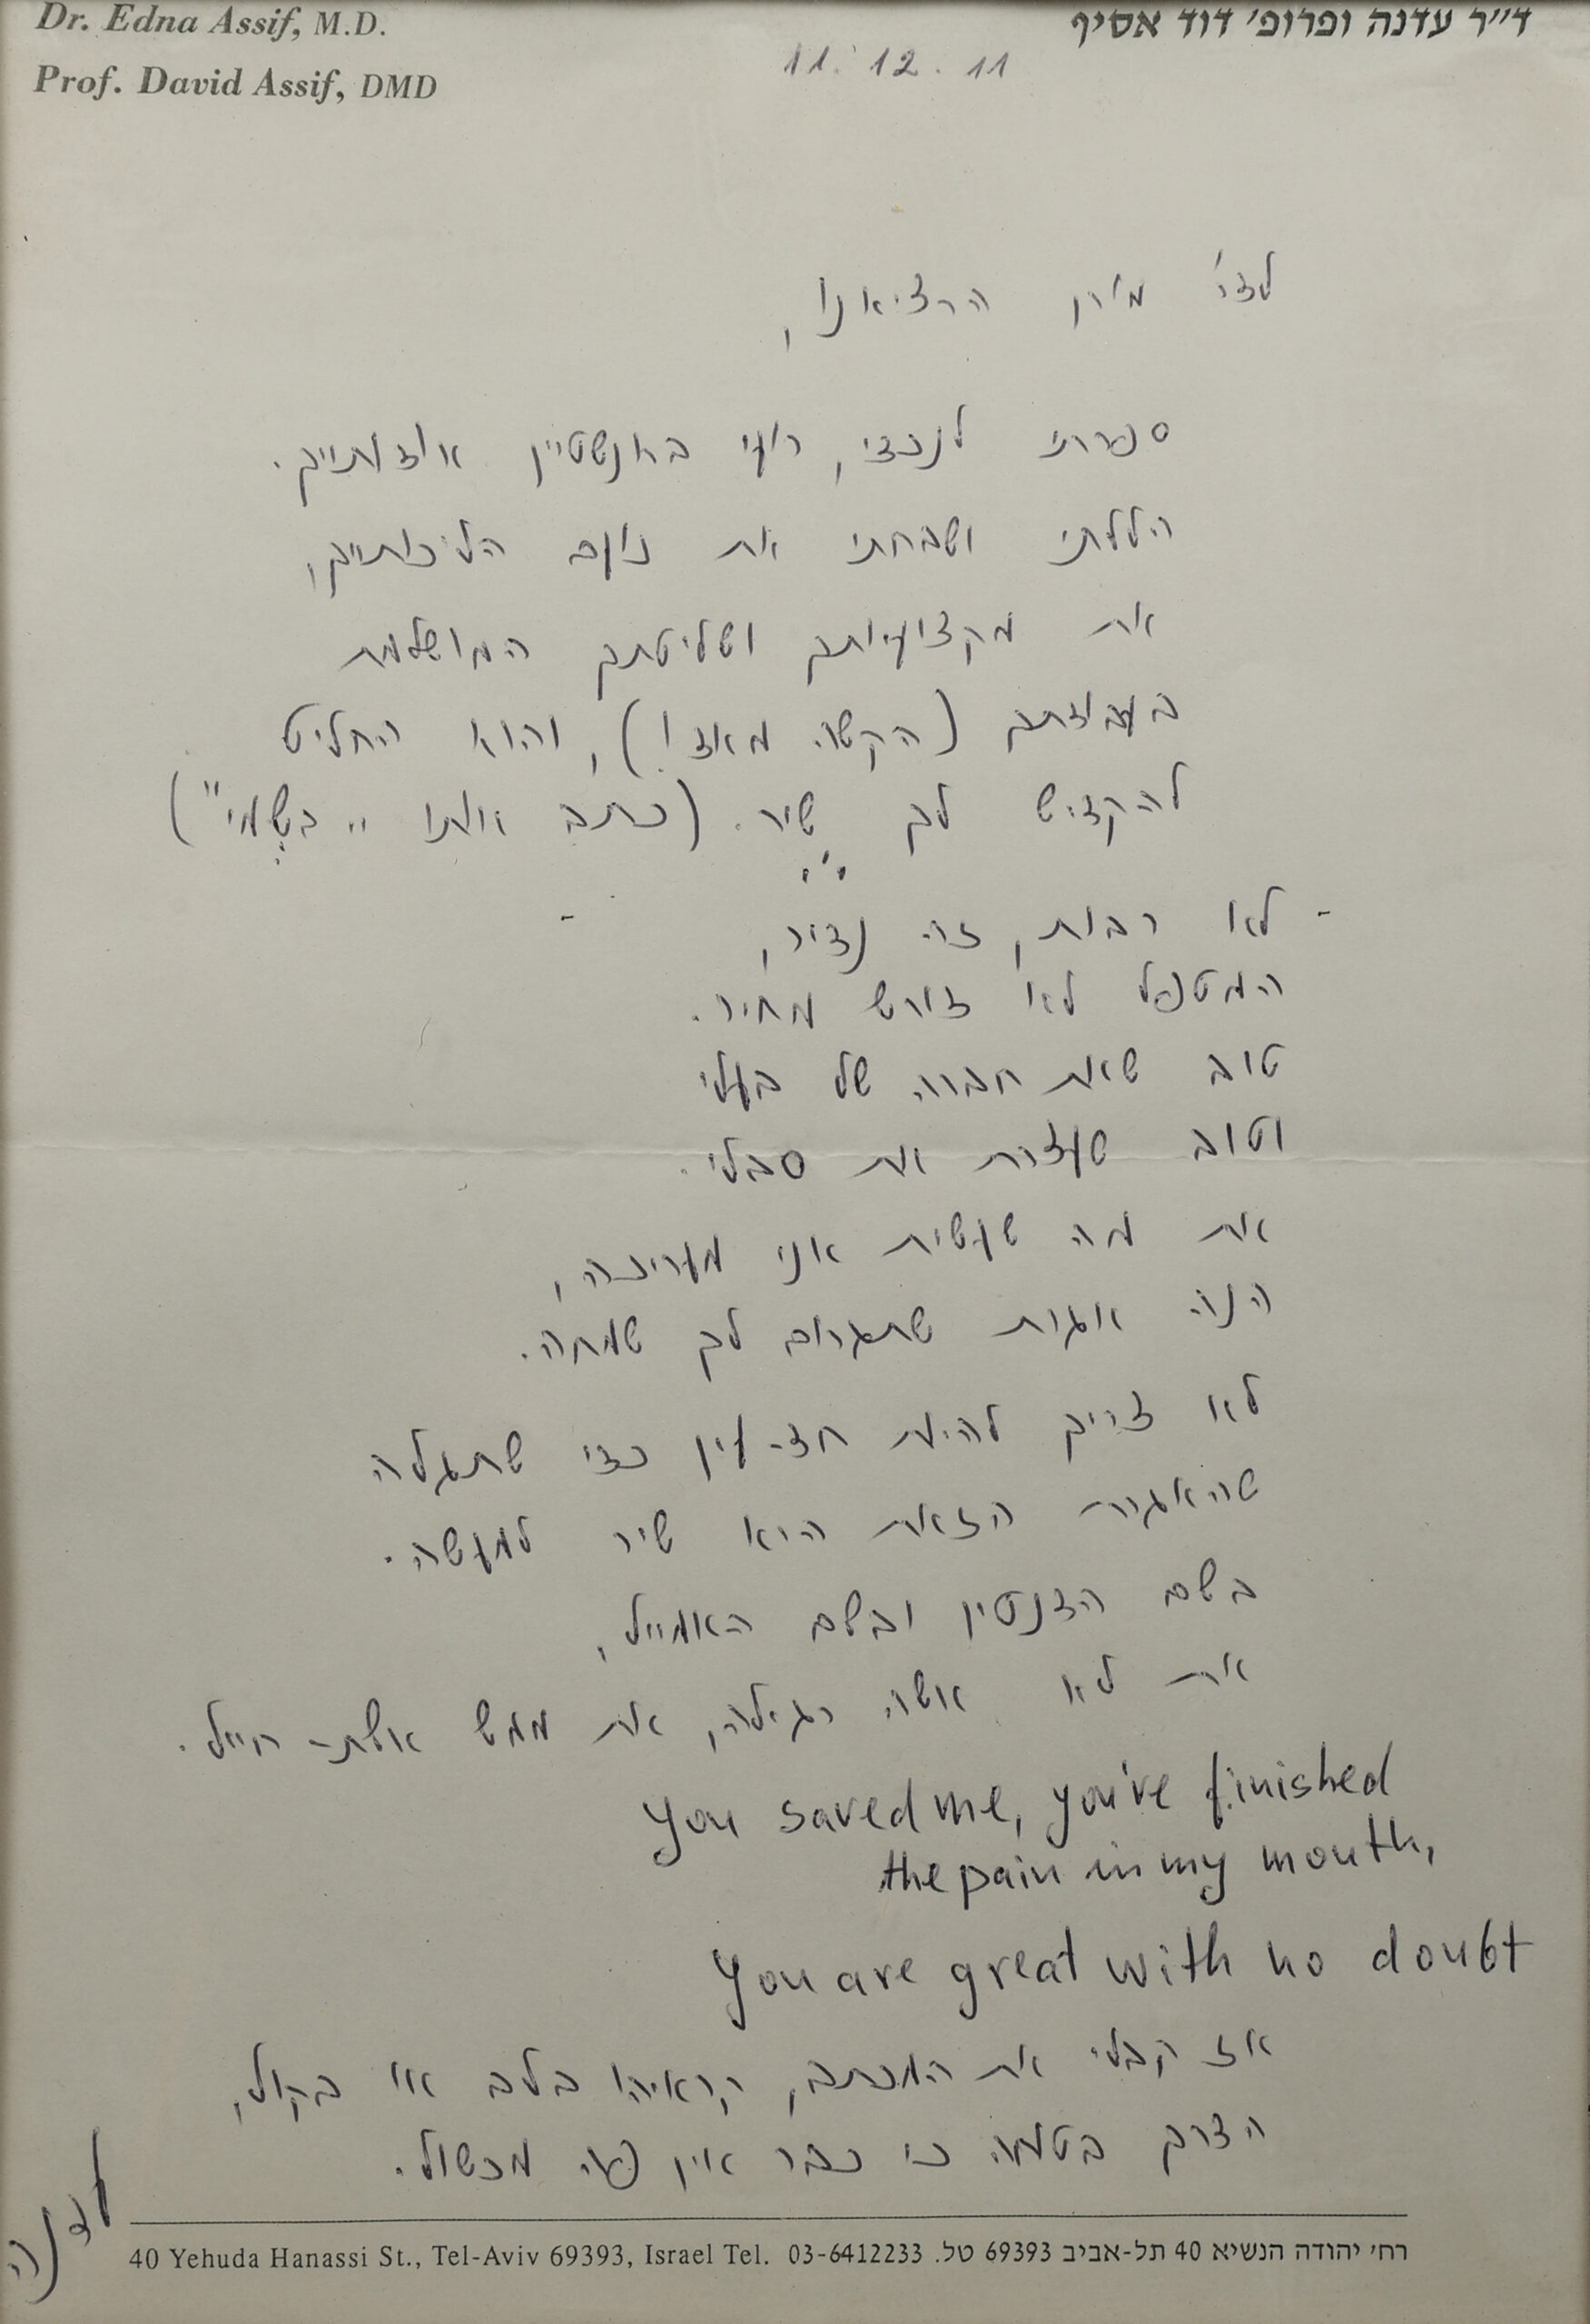 Dr. Edna Assif, M.D.
ד״ר עדנה ופרופ׳ דוד אסיף
Prof. David Assif, DMD
11.12.11
לד״ר הרציאנו,
ספרתי לנכדי, רועי בורנשטיין אודותייך.
הללתי ושבחתי את נועם הליכותייך,
את מקצועיותך ושליטתך המושלמת
בעבודתך (הקשה מאוד!), והוא החליט
להקדיש לך שיר. (כתב אותו "בשמי")
- לא רבות, זה נדיר, -
המטפל לא דורש מחיר.
טוב שאת חברה של בעלי
וטוב שעצרת את סבלי.
את מה שעשית אני מעריכה,
הנה אגרת שתגרום לך שמחה.
לא צריך להיות חד-עין כדי שתגלה
שהאגרת הזאת היא שיר למעשה.
בשם הדנטין ובשם האמייל,
את לא אשה רגילה, את ממש אשת-חייל.
You saved me, you've finished
the pain in my mouth,
You are great with no doubt
אז קבלי את המכתב, קראיהו בלב או בקול,
הדרך בטוחה כי כבר אין פה מכשול.
עדנה
40 Yehuda Hanassi St., Tel-Aviv 69393, Israel Tel. 03-6412233 רח׳ יהודה הנשיא 40 תל-אביב 69393 טל.